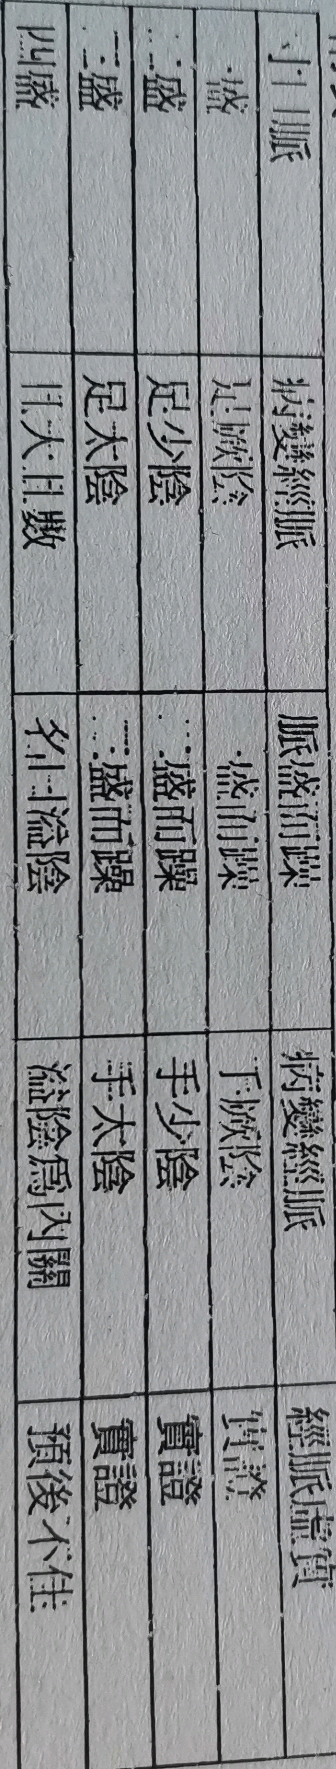 寸口脈 病變經脈 脈盛而躁 病變經脈 經脈虛實
一盛 足厥陰 一盛而躁 手厥陰 實證
二盛 足少陰 二盛而躁 手少陰 實證
三盛 足太陰 三盛而躁 手太陰 實證
四盛 且大且數 名曰溢陰 溢陰爲內關 預後不佳